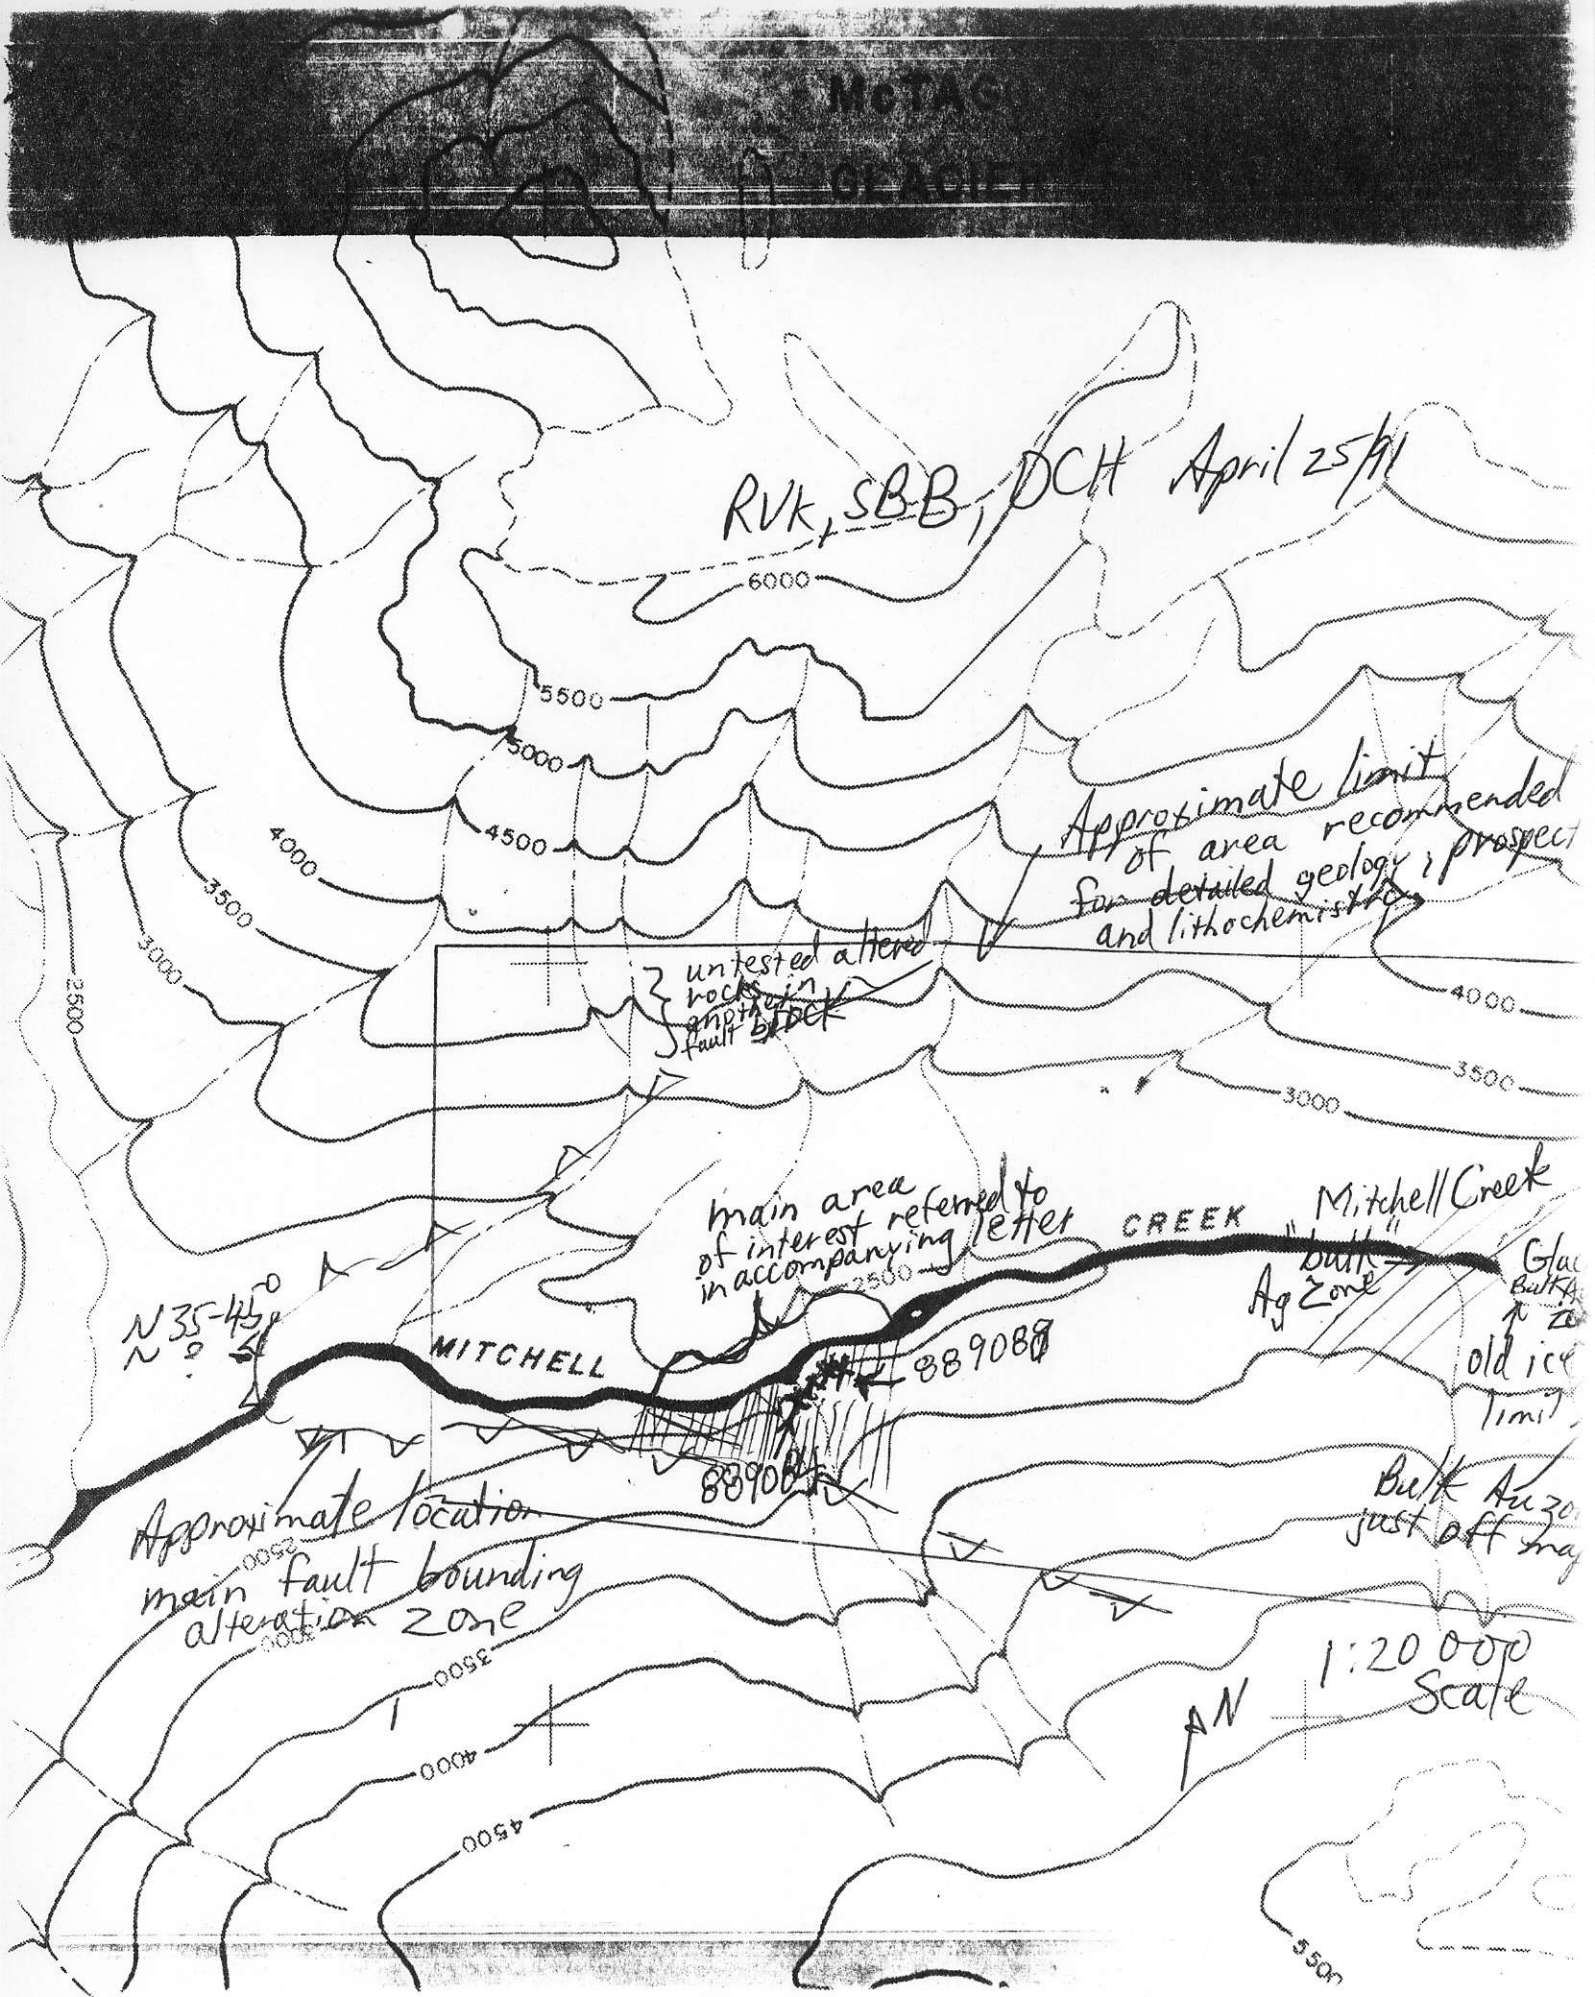 McTAG
GLACIER
RVK, SBB, DCH April 25/91
6000
5500
5000
4500
4000
3500
3000
2500
Approximate limit
of area recommended
for detailed geology, prospect
and lithochemistry
untested altered
rocks in
another
fault block
4000
3500
3000
main area
of interest referred to
in accompanying letter
2500
CREEK
Mitchell Creek
"bulk"
Ag Zone
Glac
Bulk A
old ice
limit
N 35-45°
MITCHELL
88908
88908
Bulk Au zo
just off map
Approximate location
main fault bounding
alteration zone
2500
3000
3500
4000
4500
1:20 000
Scale
N
5500